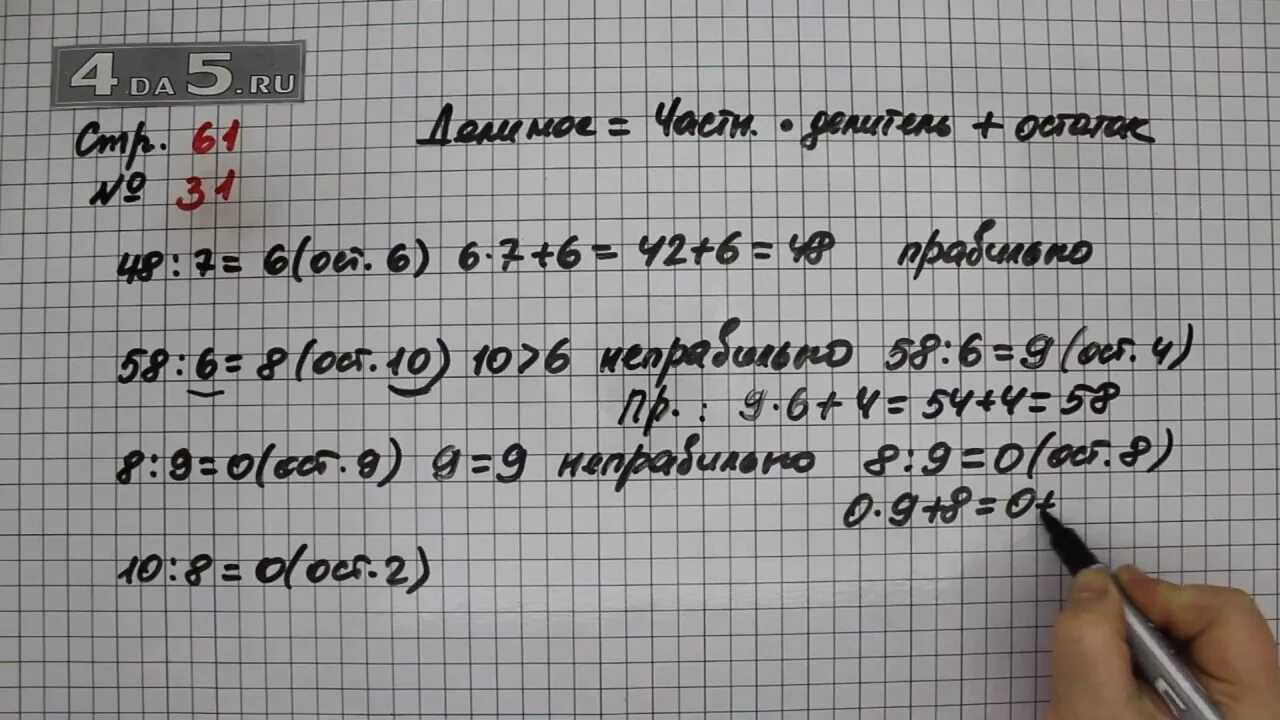 4DA5.RU
Стр. 61
№ 31
Делимое = Частн. · делитель + остаток
48 : 7 = 6 (ост. 6) 6·7+6 = 42+6 = 48 правильно
58 : 6 = 8 (ост. 10) 10>6 неправильно 58:6=9 (ост. 4)
Пр. : 9·6+4=54+4=58
8:9=0(ост.9) 9=9 неправильно 8:9=0(ост.8)
0·9+8=0+
10:8=0(ост.2)